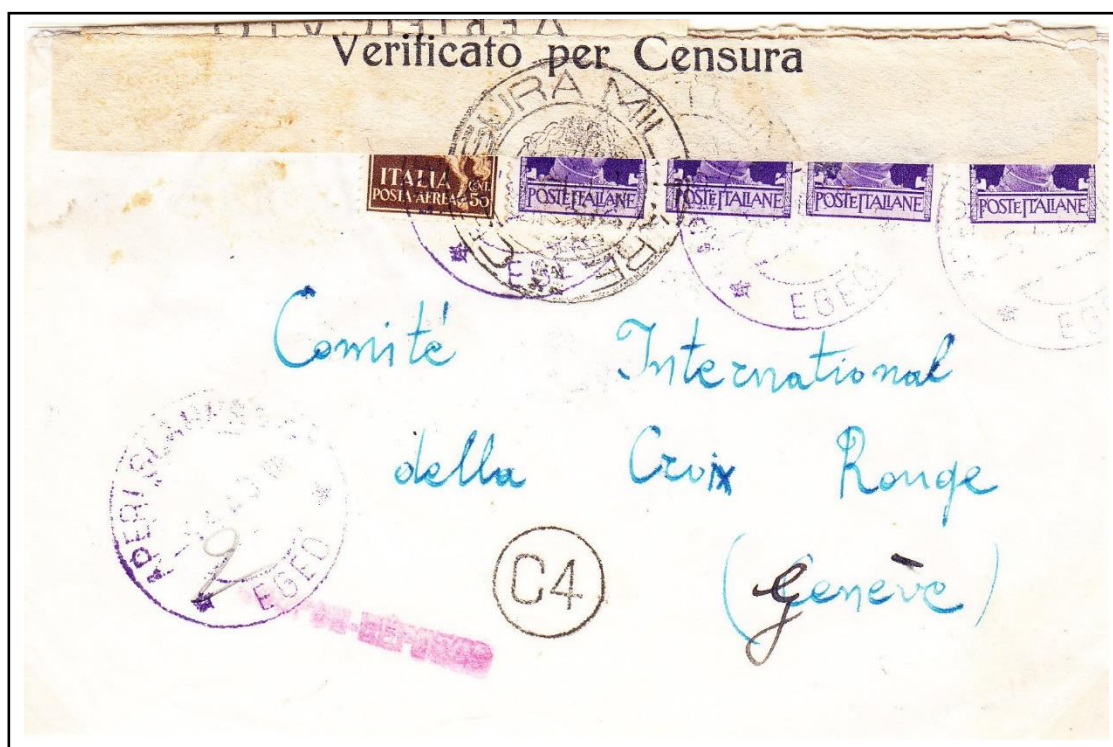 Verificato per Censura
CENSURA MILITARE
ITALIA
POSTA AEREA
CENT. 50
POSTE ITALIANE
POSTE ITALIANE
POSTE ITALIANE
POSTE ITALIANE
EGEO
EGEO
Comité International
della Croix Rouge
(Genève)
APERI
EGEO
C4